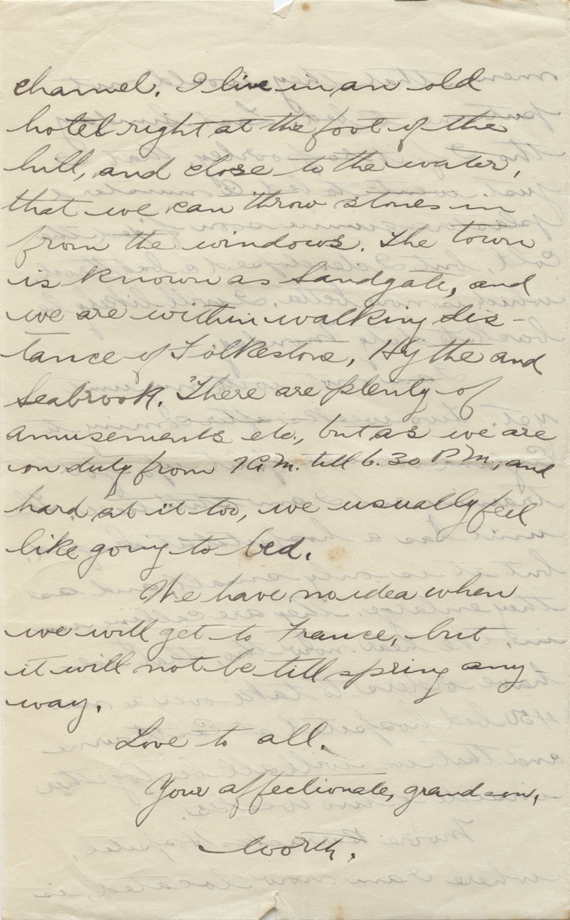 channel. I live in an old
hotel right at the foot of the
hill, and close to the water,
that we can throw stones in
from the windows. The town
is known as Sandgate, and
we are within walking dis-
tance of Folkestone, Hythe and
Seabrook. There are plenty of
amusements etc, but as we are
on duty from 7 A.M. till 6.30 P.M., and
hard at it too, we usually feel
like going to bed.
We have no idea when
we will get to France, but
it will not be till spring any
way.
Love to all.
Your affectionate, grandson,
Worth.